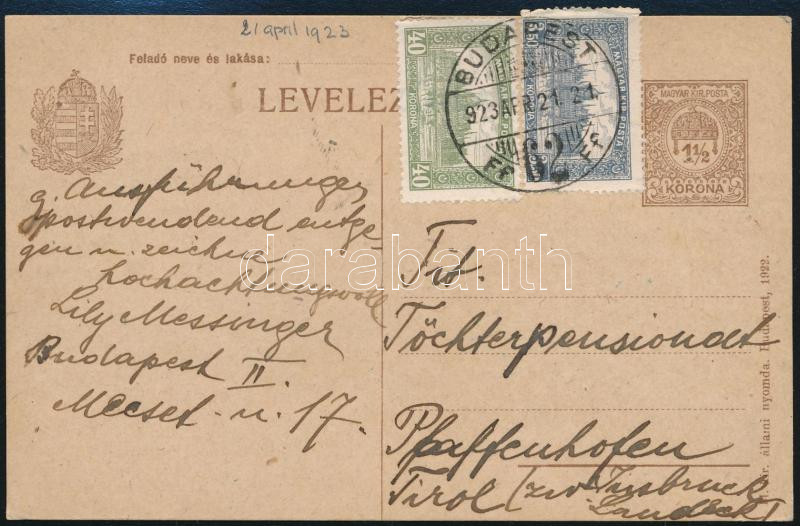 21 april 1923
Feladó neve és lakása:
LEVELEZ
40
40
KORONA
MAGYAR KIR. POSTA
3.50
BUDAPEST
923 APR 21. 21
62
Ff Ff
MAGYAR KIR. POSTA
1½
KORONA
g. Ausführungen
postwendend entge-
gen u. zeichne
hochachtungsvoll
Lily Messinger
Budapest II.
Mecset-u. 17.
Tit.
Töchterpensionat
Pfaffenhofen
Tirol (zw. Insbruck
Landeck)
M. kir. állami nyomda. Budapest, 1922.
darabanth